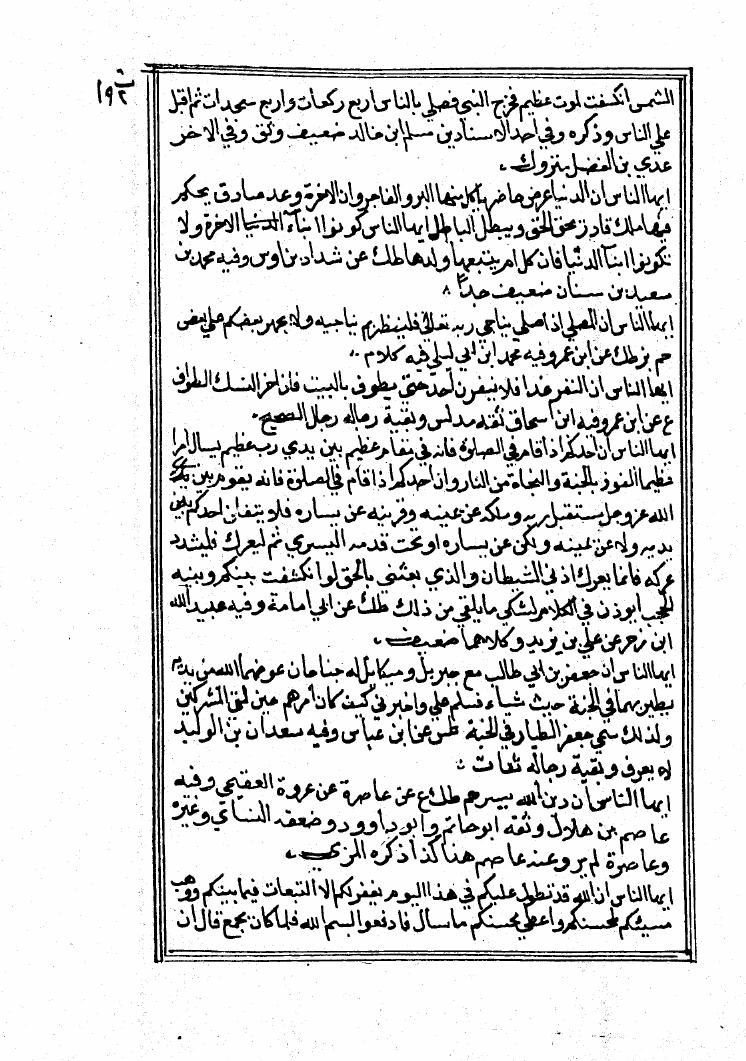 ١٩٢
الشمس انكسفت لموت عظيم فخرج النبي فصلي بالناس اربع ركعات واربع سجدات ثم اقبل
علي الناس وذكره وفي احد الاسناد بن مسلم ابن خالد ضعيف وثق وفي الاخر
عدي بن الفضل متروك
ايها الناس ان الدنيا عرض حاضر ياكل منها البر والفاجر وان الاخرة وعد صادق يحكم
فيها ملك قادر يحق الحق ويبطل الباطل ايها الناس كونوا ابناء الاخرة ولا
تكونوا ابنا الدنيا فان كل ام يتبعها ولدها طك عن شداد بن اوس وفيه محمد بن
سعيد بن سنان ضعيف جدا
ايها الناس ان المصلي اذا صلي يناجي ربه تعالي فلينظر بم يناجيه ولا يجهر بعضكم علي بعض
حم بز طك عن ابن عمر وفيه محمد ابن ابي ليلي فيه كلام
ايها الناس ان النفر غدا فلا ينفرن احد حتي يطوف بالبيت فان اخر النسك الطواف
ع عن ابن عمر وفيه ابن اسحاق ثقه مدلس وبقية رجاله رجال الصحيح
ايها الناس ان احدكم اذا قام في الصلوة فانه في مقام عظيم بين يدي رب عظيم يسال امرا
عظيما الفوز بالجنة والنجاة من النار وان احدكم اذا قام في الصلوة فانه يقوم بين يدي
الله عز وجل يستقبل ربه وملكه عن يمينه وقرينه عن يساره فلا يتفلن احدكم بين
يديه ولا عن يمينه ولكن عن يساره او تحت قدمه اليسري ثم ليعرك فليشدد
عركه فانما يعرك اذني الشيطان والذي بعثني بالحق لو انكشفت بينكم وبينه
الحجب او يوذن في الكلام لشكي ما يلقي من ذلك طك عن ابي امامة وفيه عبيد الله
ابن زحر عن علي بن يزيد وكلاهما ضعيف
ايها الناس ان جعفر بن ابي طالب مع جبريل وميكايل له جناحان عوضهما الله من يديه
يطير بهما في الجنة حيث شاء فسلم علي واخبرني كيف كان امرهم حين لقي المشركين
ولذلك سمي جعفر الطيار في الجنة طس عن ابن عباس وفيه سعدان بن الوليد
لا يعرف وبقية رجاله ثقات
ايها الناس ان دين الله يسر هم طك ع عن عاصرة عن عروة الفقيمي وفيه
عاصم بن هلال وثقه ابو حاتم وابو داوود وضعفه النساي وغيره
وعاصرة لم يرو عنه عاصم هنا كذا ذكره المزي
ايها الناس ان الله قد تطول عليكم في هذا اليوم يغفر لكم الا التبعات فيما بينكم ووهب
مسيئكم لمحسنكم واعطي محسنكم ما سال فادفعوا بسم الله فلما كان بجمع قال ان